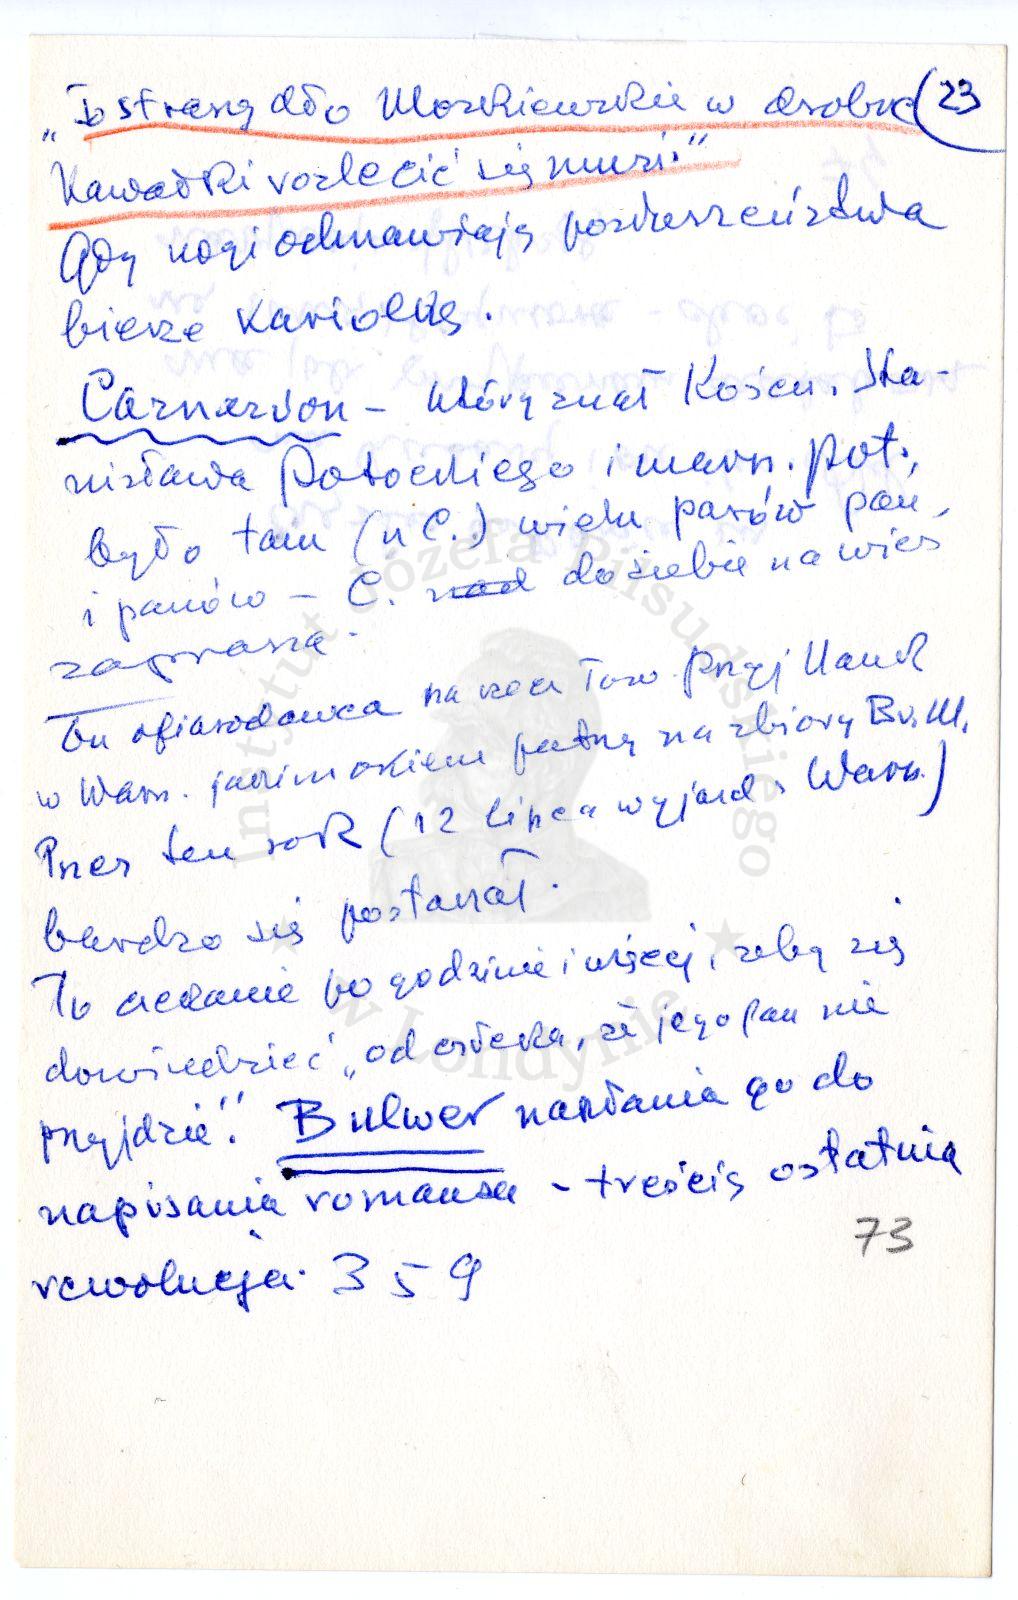 23
„To straszydło Moskiewskie w drobne
kawałki rozlecić się musi."
Gdy nogi odmawiają posłuszeństwa
bierze kariolkę.
Carnarvon – który znał Kościu. Sta-
nisława Potockiego i marsz. Pot.,
było tam (u C.) wielu parów pań,
i panów – C. nad do siebie na wieś
zaprasza.
Tu ofiarodawca na rzecz Tow. Przyj Nauk
w Warsz. patrzy na zbiory Br. M.
Przez ten rok (12 lipca wyjazd z Warsz.)
bardzo się postarzał.
To czekanie po godzinie i więcej, żeby się
dowiedzieć „od człeka, że jego pan nie
przyjdzie". Bulwer nakłania go do
napisania romansu – treścią ostatnia
rewolucja. 359
73
Instytut Józefa Piłsudskiego
w Londynie